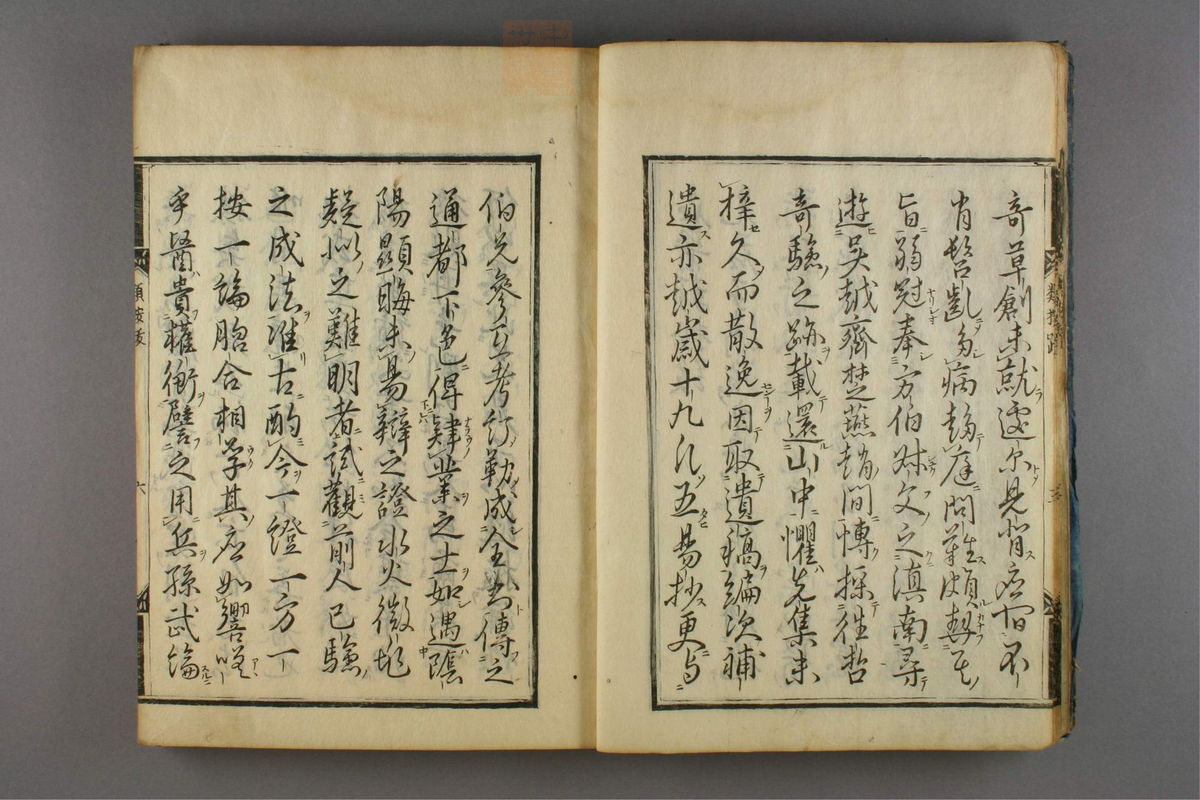 奇草創未就遽尓見背应宿不
肖髫齔多病趨庭問難頗契其
旨弱冠奉方伯叔父之滇南尋
遊吴越齊楚燕趙間愽採往哲
奇驗之跡載還山中懼先集未
梓久而散逸因取遺稿編次補
遺亦越歲十九凡五易抄更与
伯兄參互考訂勒成全書傳之
通都下邑俾肄業之士如遇陰
陽顯晦未易辯之證水火徵兆
疑似之難明者試觀前人已驗
之成法准古酌今一證一方一
按一論脗合相孚其应如響嗟
乎醫貴權衡譬之用兵孫武論
類按跋
六